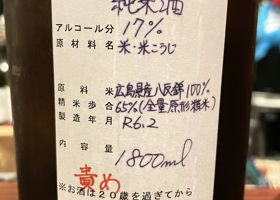 純米酒
アルコール分 17%
原材料名 米・米こうじ
原料米 広島県産八反錦100%
精米歩合 65%(全量原形精米)
製造年月 R6.2
内容量 1800ml
責め
※お酒は20歳を過ぎてから